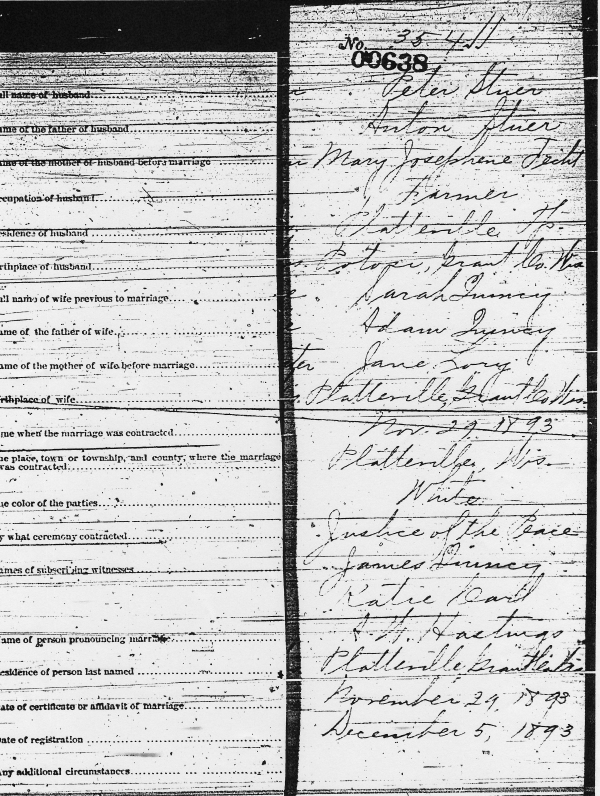 No. 354
00638
ull name of husband Peter Stuer
ame of the father of husband Anton Stuer
ame of the mother of husband before marriage Mary Josephene
ccupation of husband Farmer
esidence of husband Platteville Tp.
irthplace of husband Potosi, Grant Co. Wis
ull name of wife previous to marriage Sarah Quincy
ame of the father of wife Adam Quincy
ame of the mother of wife before marriage Jane
irthplace of wife Platteville, Grant Co Wis.
me when the marriage was contracted Nov. 29, 1893
he place, town or township, and county, where the marriage
was contracted Platteville, Wis.
he color of the parties White
y what ceremony contracted Justice of the Peace
ames of subscribing witnesses James Quincy
Katie
ame of person pronouncing marriage Hastings
esidence of person last named Platteville Grant Co Wis
ate of certificate or affidavit of marriage November 29, 1893
ate of registration December 5, 1893
ny additional circumstances